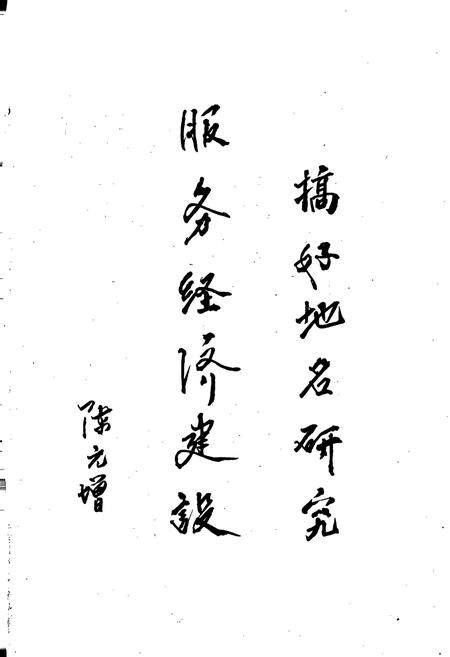 搞好地名研究
服务经济建設
陈元增